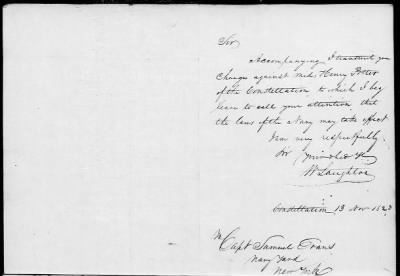 Sir
Accompanying I transmit you
Charges against Mid. Henry Potter
of the Constellation to which I beg
leave to call your attention that
the laws of the Navy may take effect
I am very respectfully
Sir
Constellation 13 Nov
To Capt Samuel Evans
Navy Yard
New York